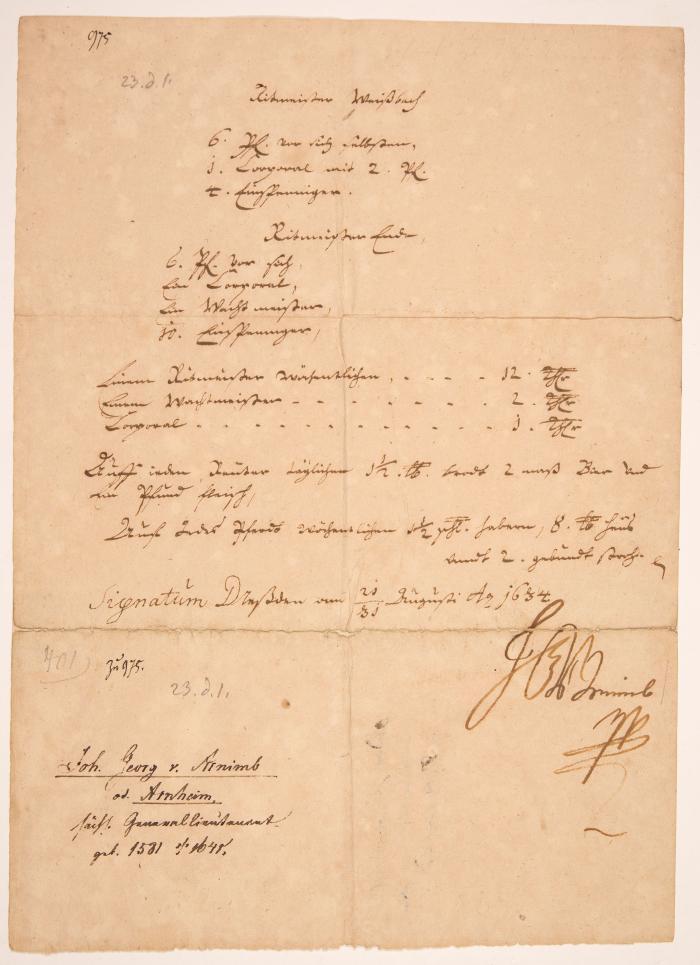 975
23.d.1.
Ritmeister Weißbach
6. Pf. vor sich selbsten,
1. Corporal mit 2. Pf.
4. Einspenniger.
Ritmeister Ende,
6. Pf. vor sich,
Ein Corporal,
Ein Wachtmeister,
10. Einspenniger,
Einem Ritmeister wöchentlichen, - - - 12. Thlr
Einem Wachtmeister - - - - - - 2. Thlr
Corporal - - - - - - - - - - 1. Thlr
Auff ieden Reuter täglichen 1½. lb. brodt 2 maß Bier und
ein Pfund fleisch,
Auf Jedes Pferdt wöchentlichen 1½ habern, 8. lb heü
vundt 2. gebundt stroh.
Signatum Dreßden am 21/31 Augusti Ao 1634
HGvArnimb
401
zu 975.
23.d.1.
Joh. Georg v. Arnimb
od. Arnheim,
sächs. Generallieutenant
geb. 1581 † 1641.